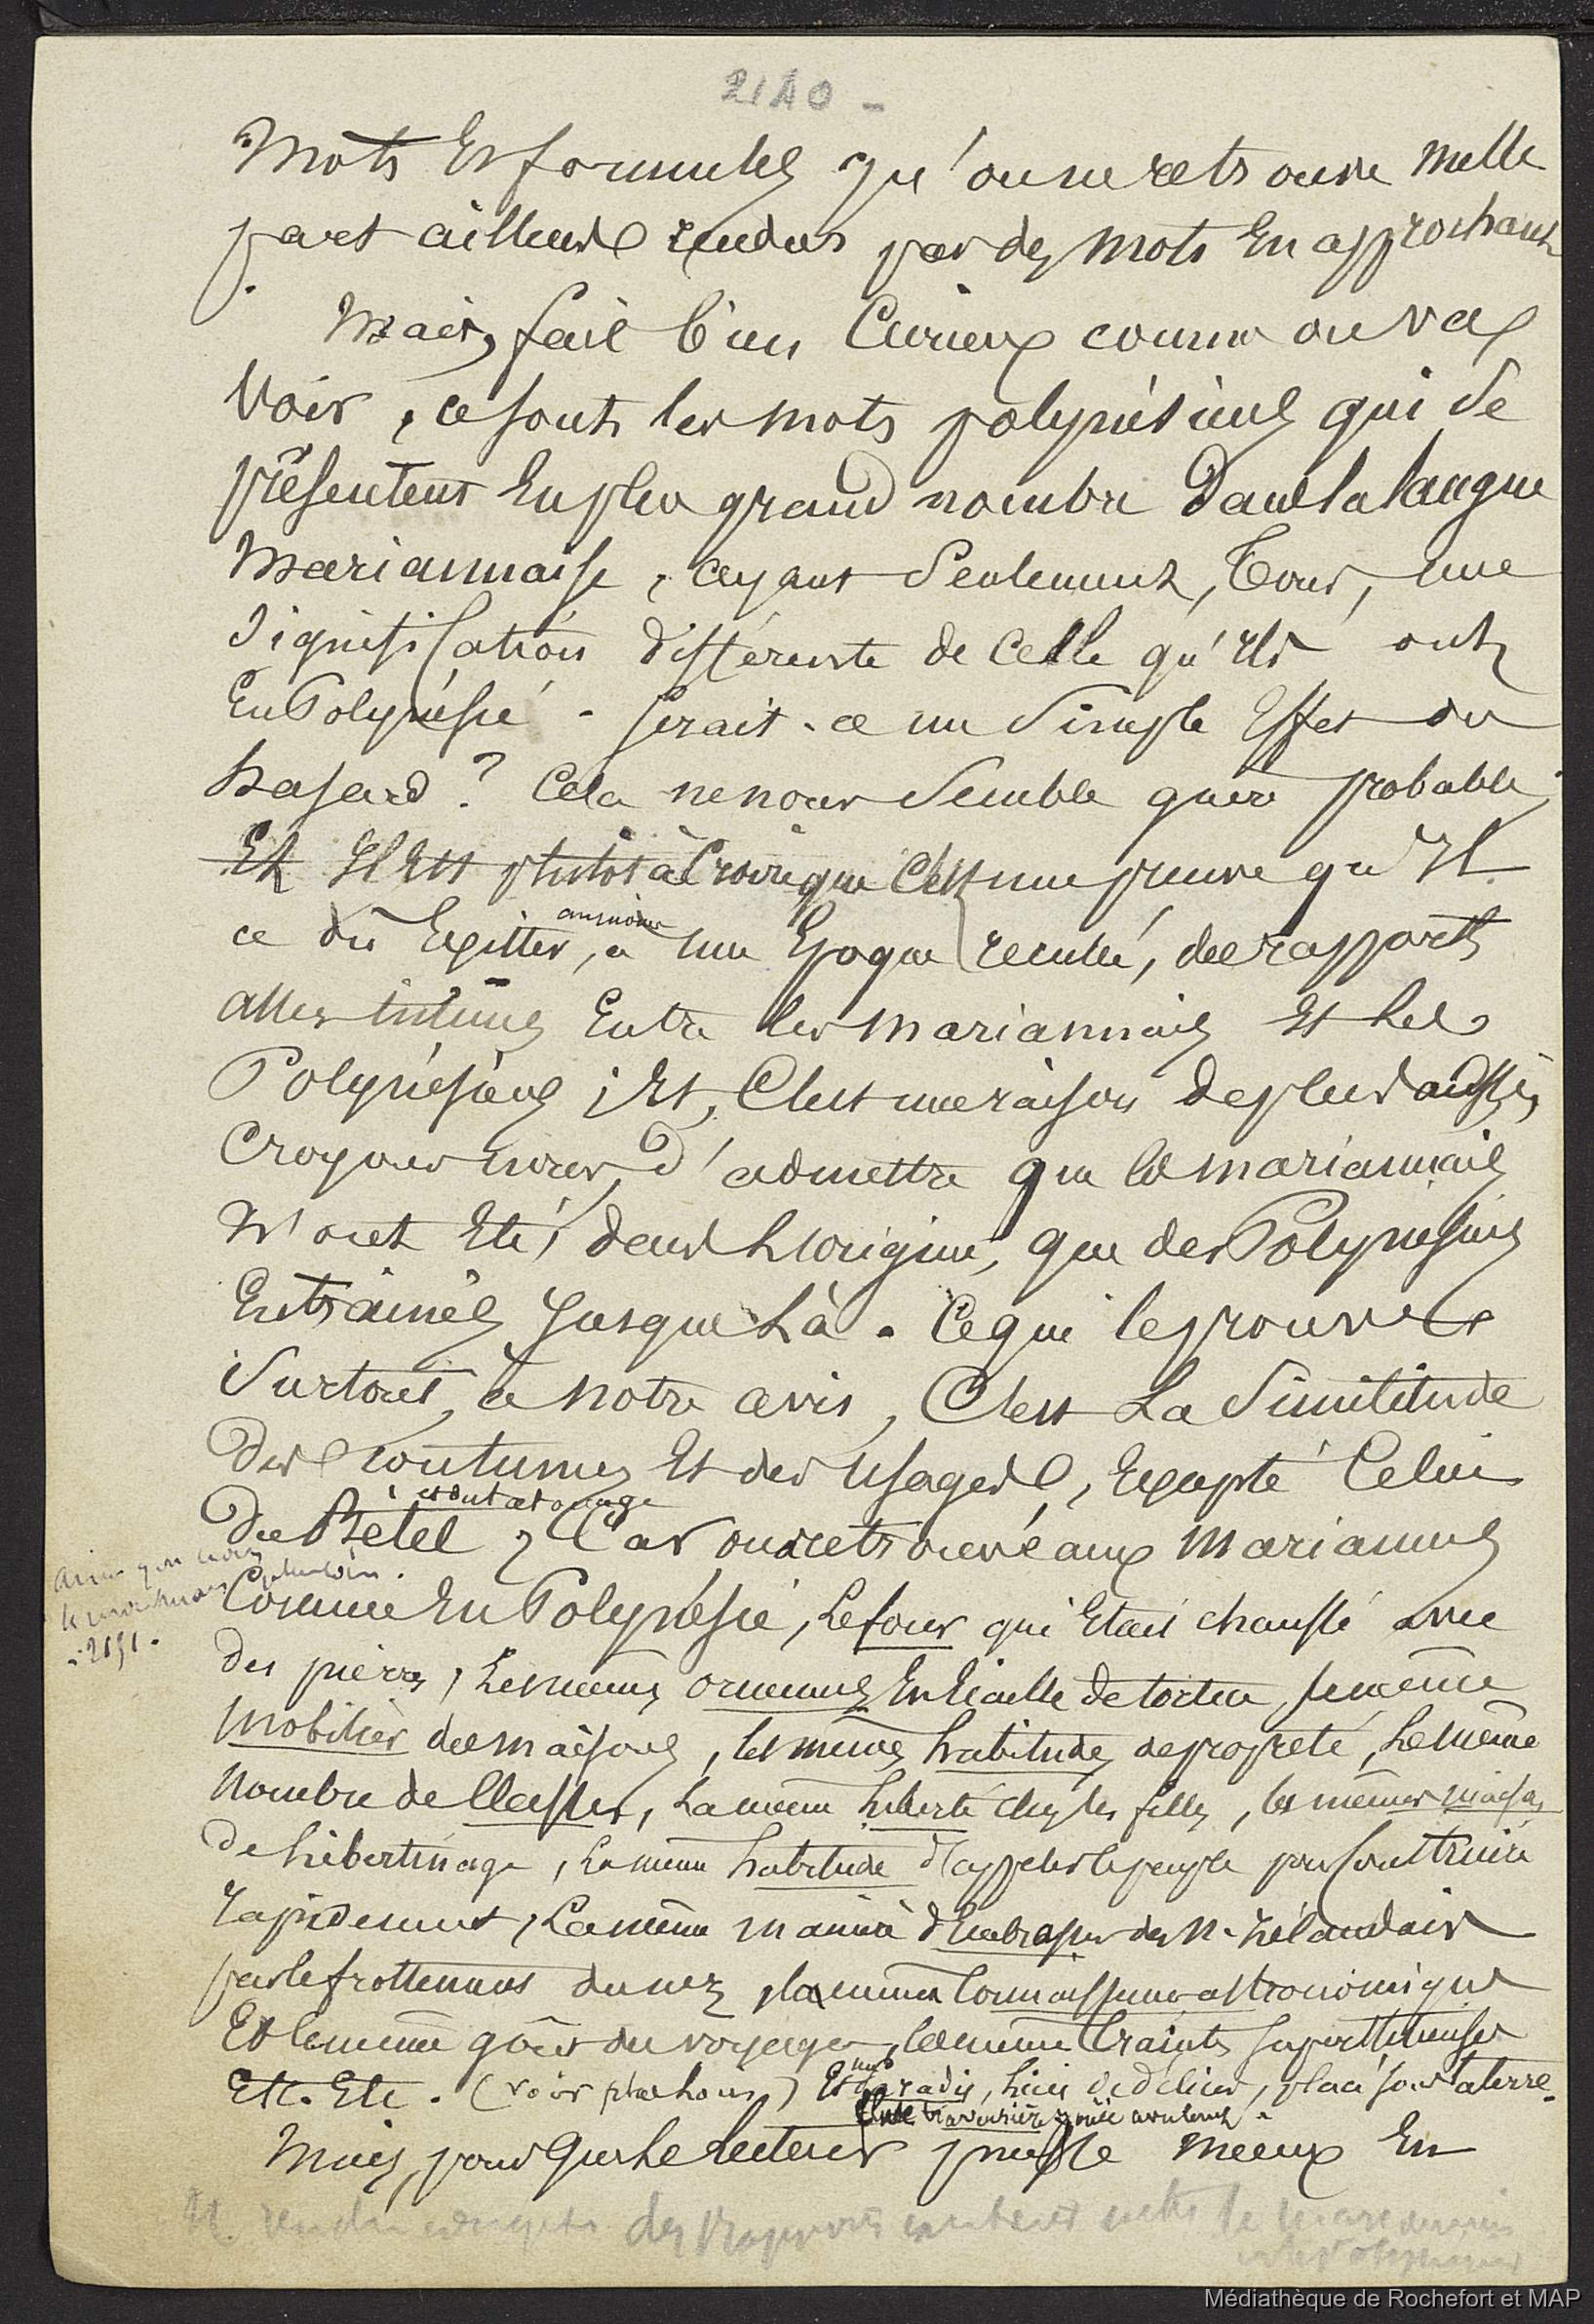 2140 -
Mots Et formules qu'on ne retrouve nulle
part ailleurs rendus par des mots En approchant
Mais, fait bien Curieux comme on va
Voir, ce sont les mots polynésiens qui se
présentent En plus grand nombre Dans la langue
Mariannaise, ayant Seulement, Tous, une
Signification différente de Celle qu'Ils ont
En Polynésie - Serait-ce un Simple Effet du
hasard ? Cela ne nous Semble guère probable;
Et Il Est plutôt à Croire que C'est une preuve qu'Il
a dû Exister, à une Epoque reculée, des rapports
au moins
assez intimes Entre les mariannais Et les
Polynésiens ; Et, C'est une raison de plus aussi,
Croyons nous, D'admettre que les mariannais
N'ont Eté, dans L'origine, que des Polynésiens
Entrainés Jusque Là. Ce qui le prouve
Surtout, à notre avis, C'est La Similitude
Des Coutumes Et des Usages, Excepté Celui
Du Betel, Car on retrouve aux Mariannes
et du tatouage
- 2151.
Comme En Polynésie, Le four qui Etait chauffé avec
des pierres, Les mêmes ornemens En Ecaille de tortue, le même
Mobilier des maisons, les mêmes habitudes de propreté, Le même
Nombre de Classes, La même Liberté chez les filles, les mêmes maisons
De Libertinage, La même habitude d'appeler le peuple pour Construire
rapidement, La même manière d'Embrasser des N. Zélandais
par le frottement du nez, la même Connaissance astronomique
Et le même goût des voyages, les mêmes Craintes Superstitieuses
Etc. Etc. (voir plus loin) Et Paradis, Lieu de délices, placé sous la terre.
Mais, pour que Le lecteur puisse mieux En
rendre compte des rapports existant entre les Mariannais
et les Polynésiens
Médiathèque de Rochefort et MAP